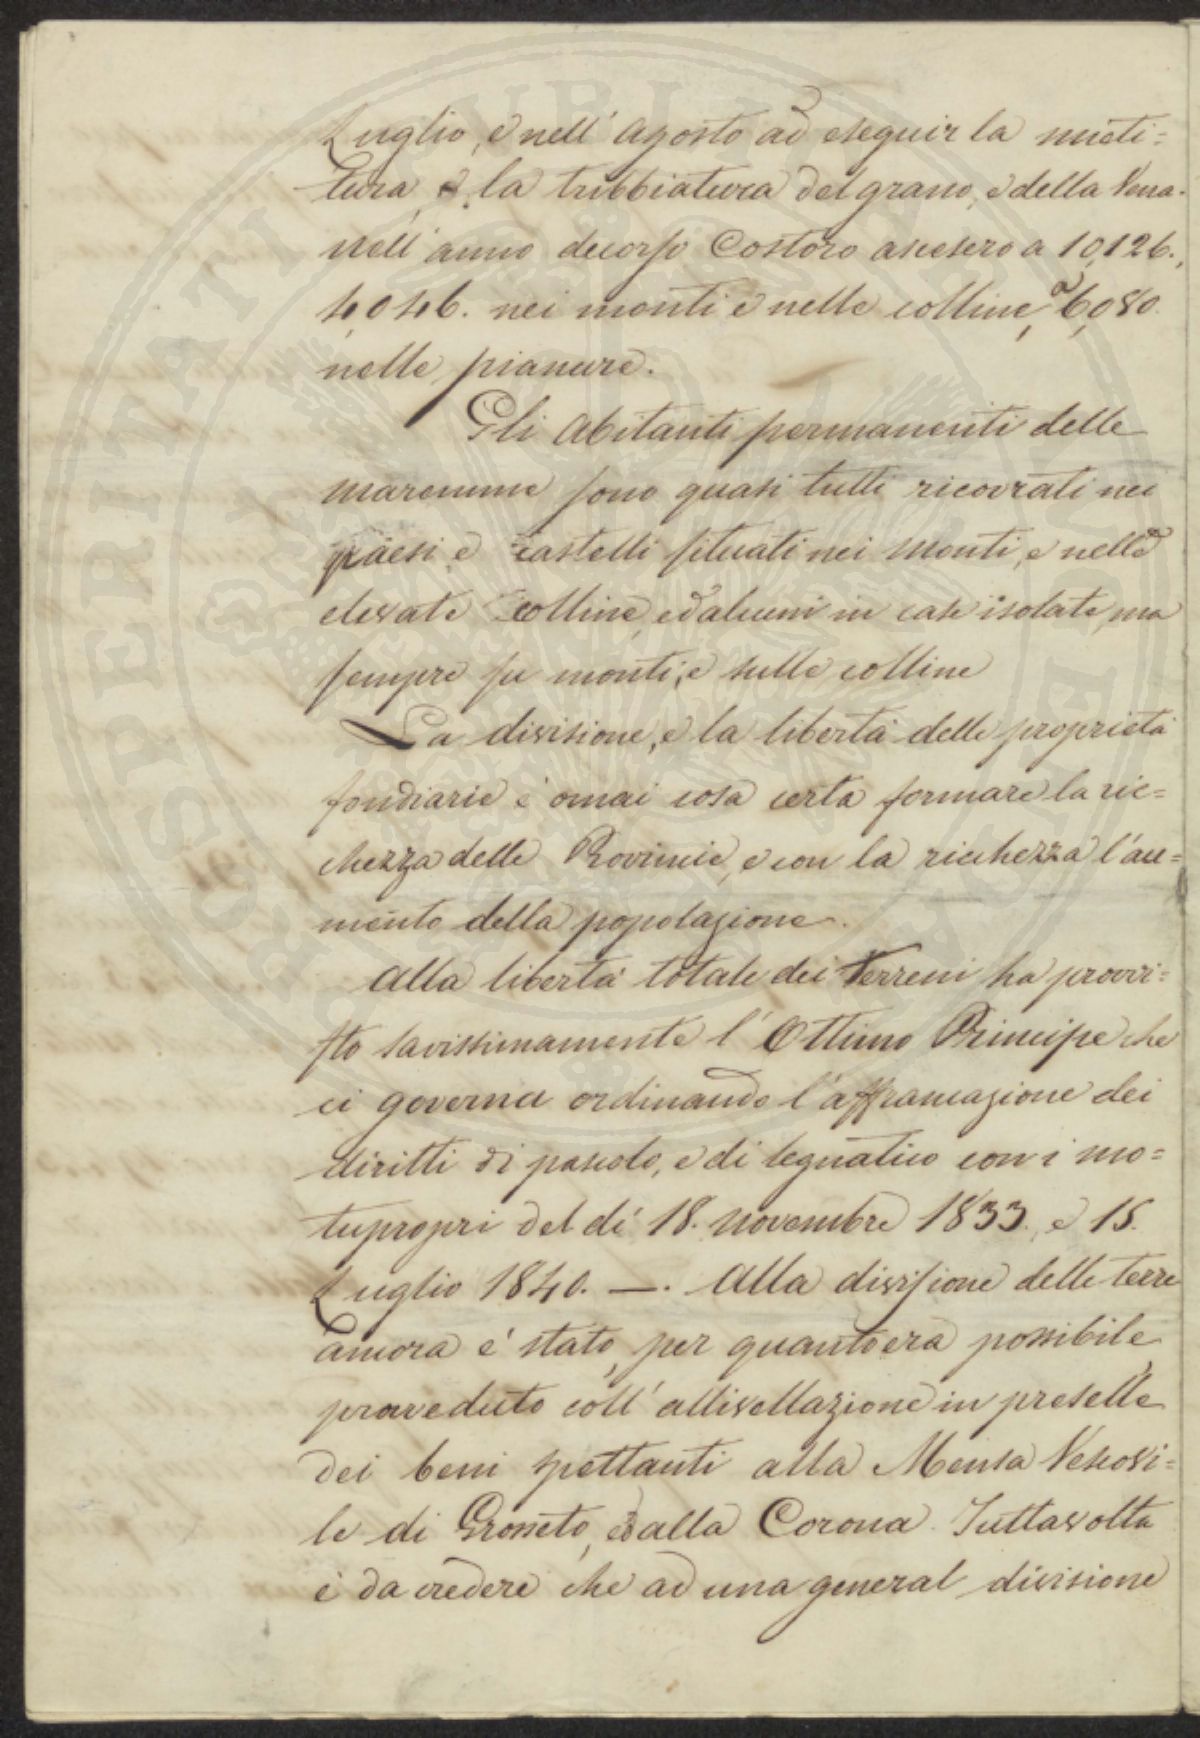 Luglio, e nell' Agosto ad eseguir la mieti=
tura, e la tribbiatura del grano, e della Vena.
nell' anno decorso Costoro ascesero a 10,126.,
4,046. nei monti e nelle colline, a 6,080.
nelle pianure.
Gli Abitanti permanenti delle
maremme sono quasi tutti ricovrati nei
paesi e castelli situati nei monti, e nelle
elevate colline, ed alcuni in case isolate, ma
sempre su monti, e sulle colline
La divisione, e la libertà delle proprietà
fondiarie è omai cosa certa formare la ric=
chezza delle Provincie, e con la ricchezza l'au=
mento della popolazione.
Alla libertà totale dei Terreni ha provvi=
sto savissimamente l'Ottimo Principe che
ci governa ordinando l'affrancazione dei
diritti di pascolo, e di legnatico con i mo=
tupropri del dì 18. novembre 1833. e 15.
Luglio 1840. —. Alla divisione delle terre
ancora è stato, per quanto era possibile
proveduto coll' allivellazione in preselle
dei beni spettanti alla Mensa Vescovi=
le di Grosseto, ed alla Corona. Tuttavolta
è da credere che ad una general divisione
PROSPERITATI PUBLICAE AUGENDAE